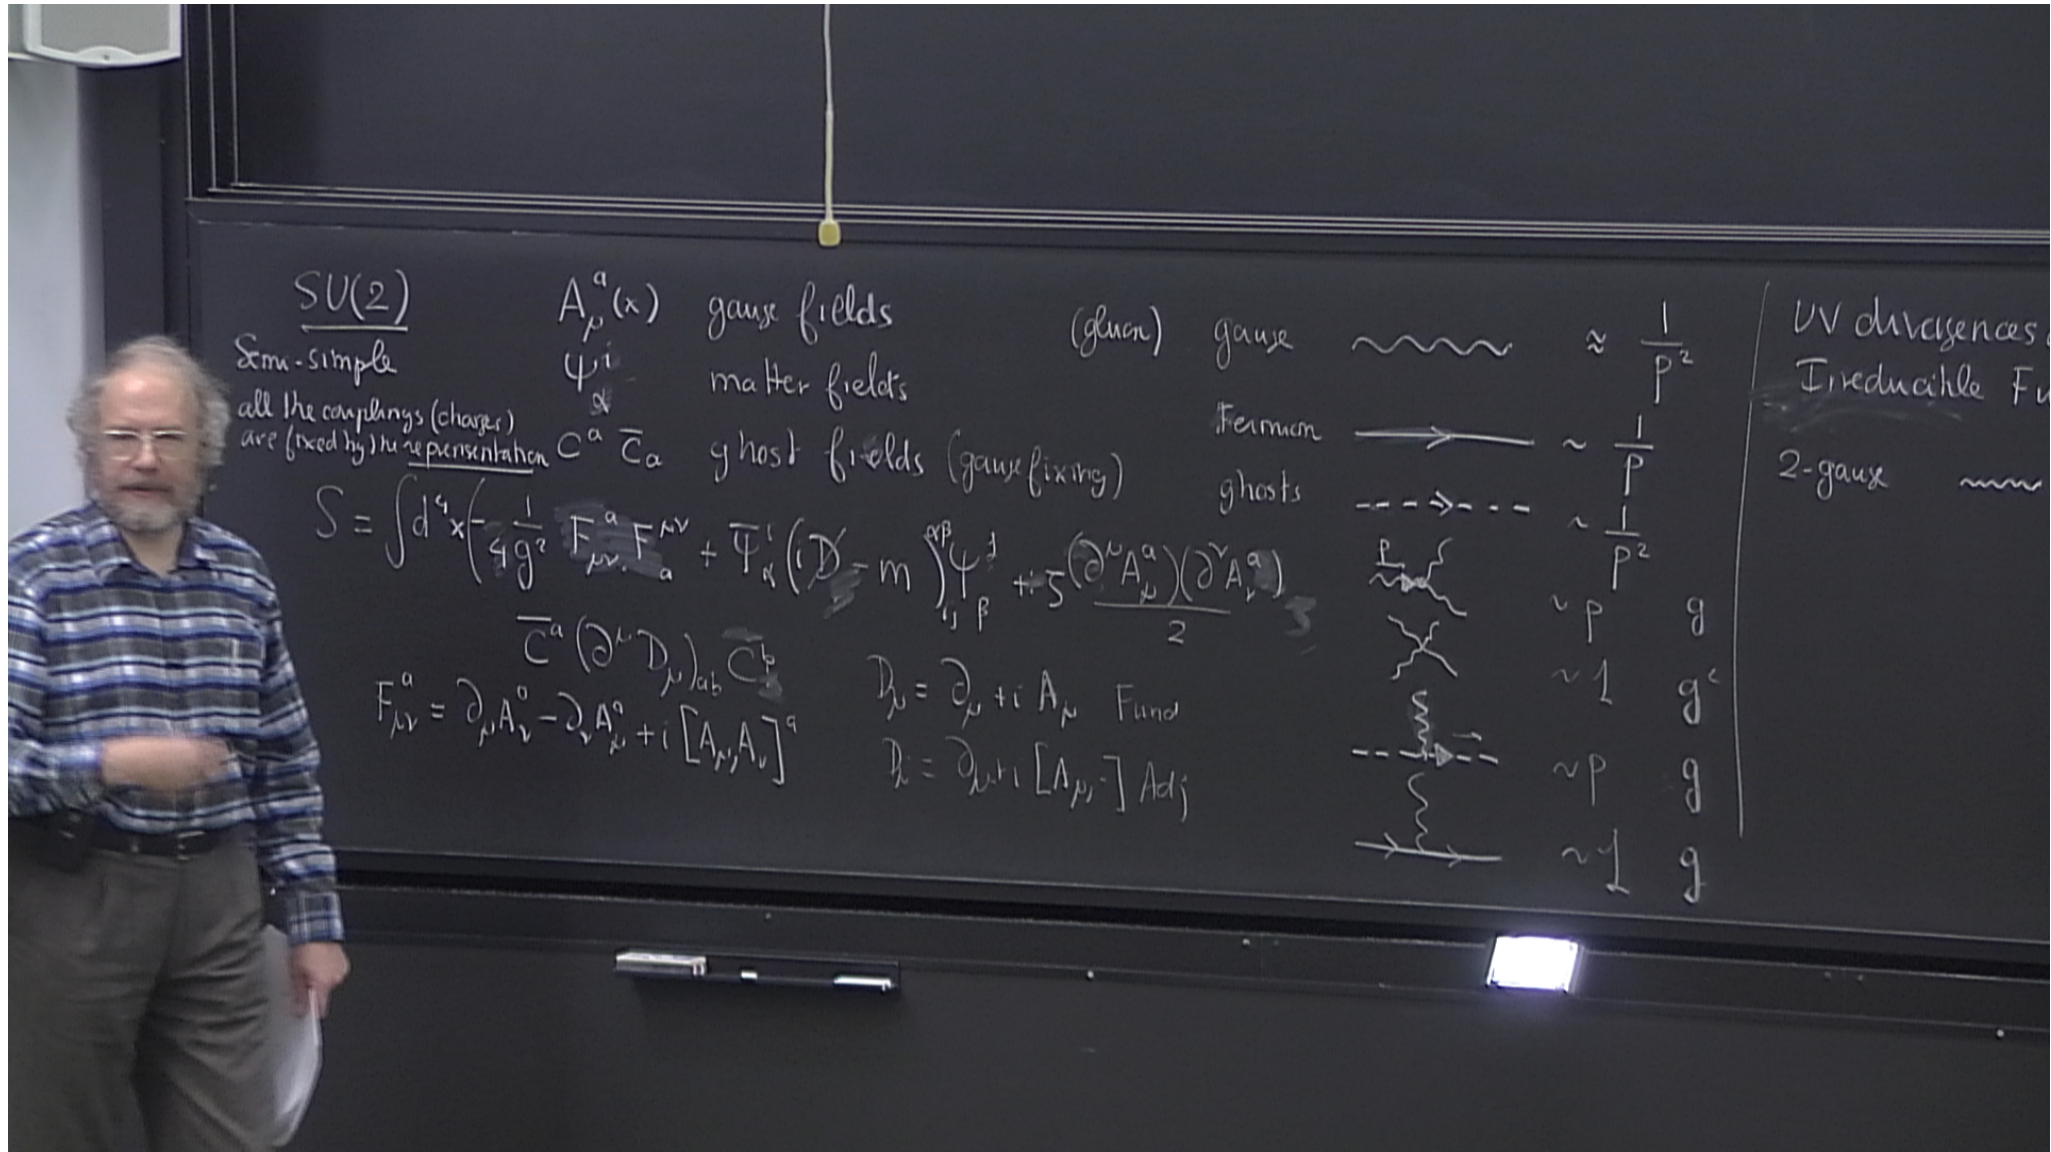 SU(2)
Semi-simple
all the couplings (charges)
are fixed by the representation
A_μ^a(x) gauge fields
ψ_α^i matter fields
C^a C̄_a ghost fields (gauge fixing)
S = ∫d⁴x(-1/4g² F_μν^a F_a^μν + Ψ̄_α^i (iD̸ - m)_ij^αβ ψ_β^j + ξ (∂^μ A_μ^a)(∂^ν A_ν^a)/2
C̄^a (∂^μ D_μ)_ab C^b
F_μν^a = ∂_μ A_ν^a - ∂_ν A_μ^a + i [A_μ, A_ν]^a
D_μ = ∂_μ + i A_μ Fund
D_μ = ∂_μ + i [A_μ, ·] Adj
(gluon) gauge ≈ 1/p²
Fermion ~ 1/p
ghosts ~ 1/p²
p ~ p g
~ 1 g²
~ p g
~ 1 g
UV divergences
Irreducible Fu
2-gauge